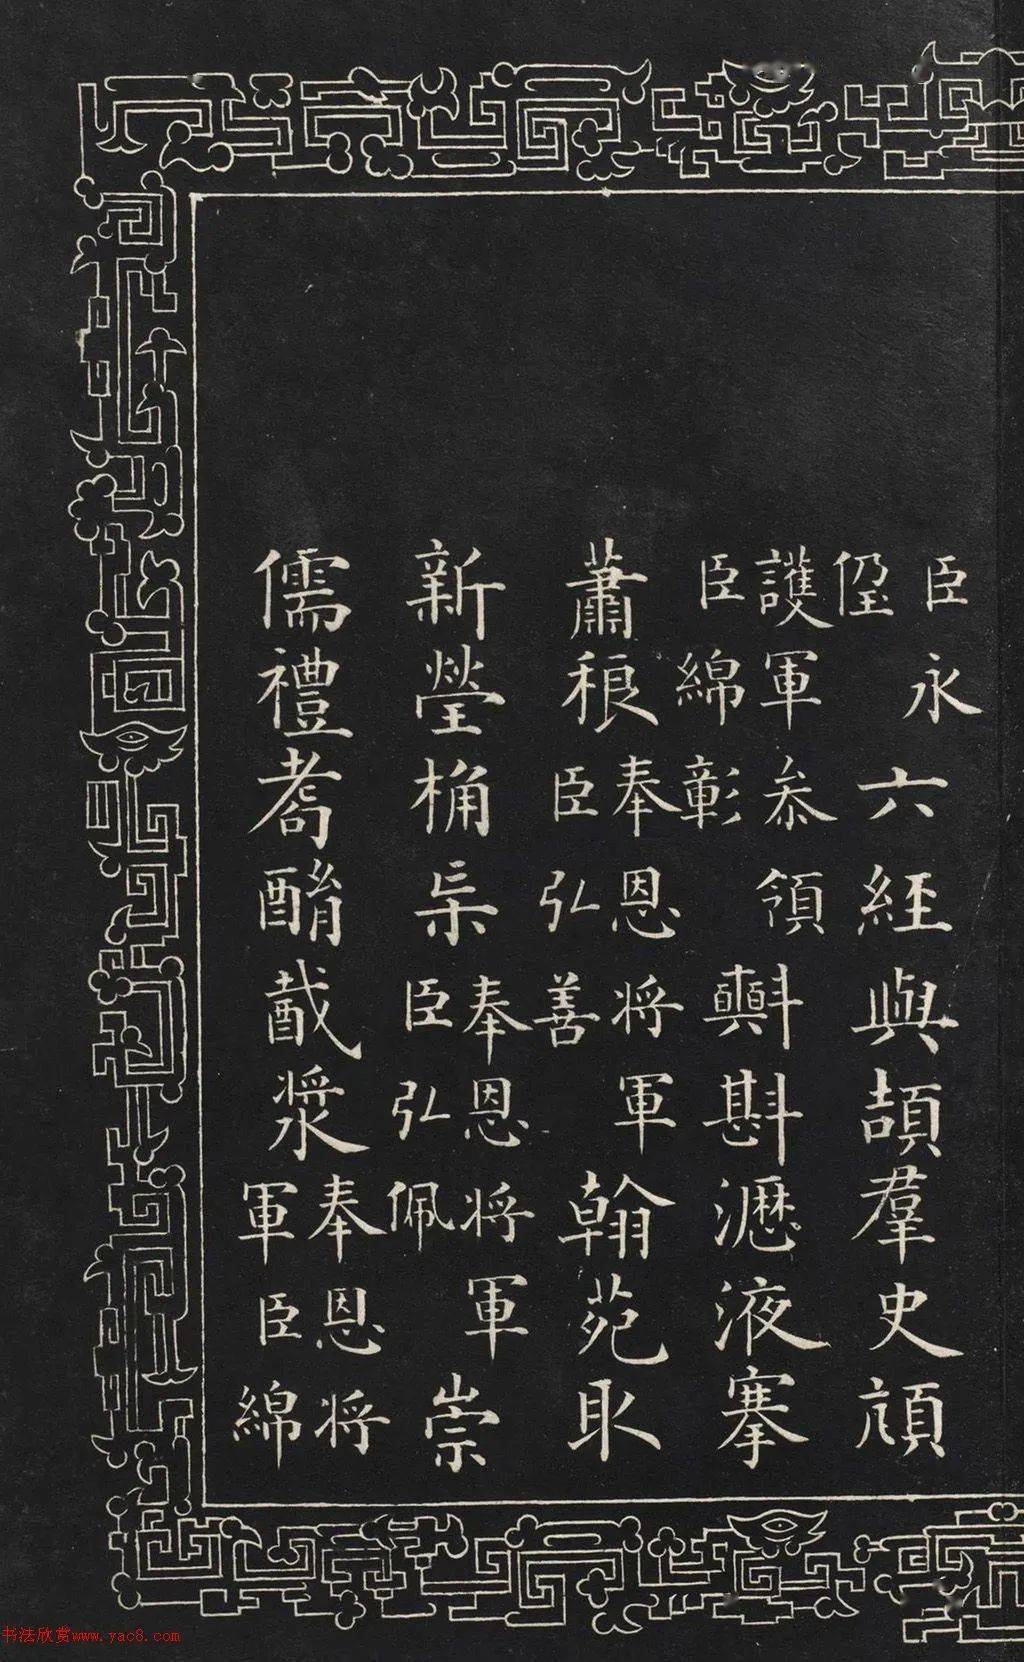 臣永
侄
六經與頡羣史頏
護軍叅領
臣綿彰
㪺斟瀝液搴
蕭稂
奉恩將軍
臣弘善
翰苑取
新瑩桷
奉恩將軍
臣弘佩
崇
儒禮耇酳酨漿
奉恩將
軍臣綿
书法欣赏www.yac8.com